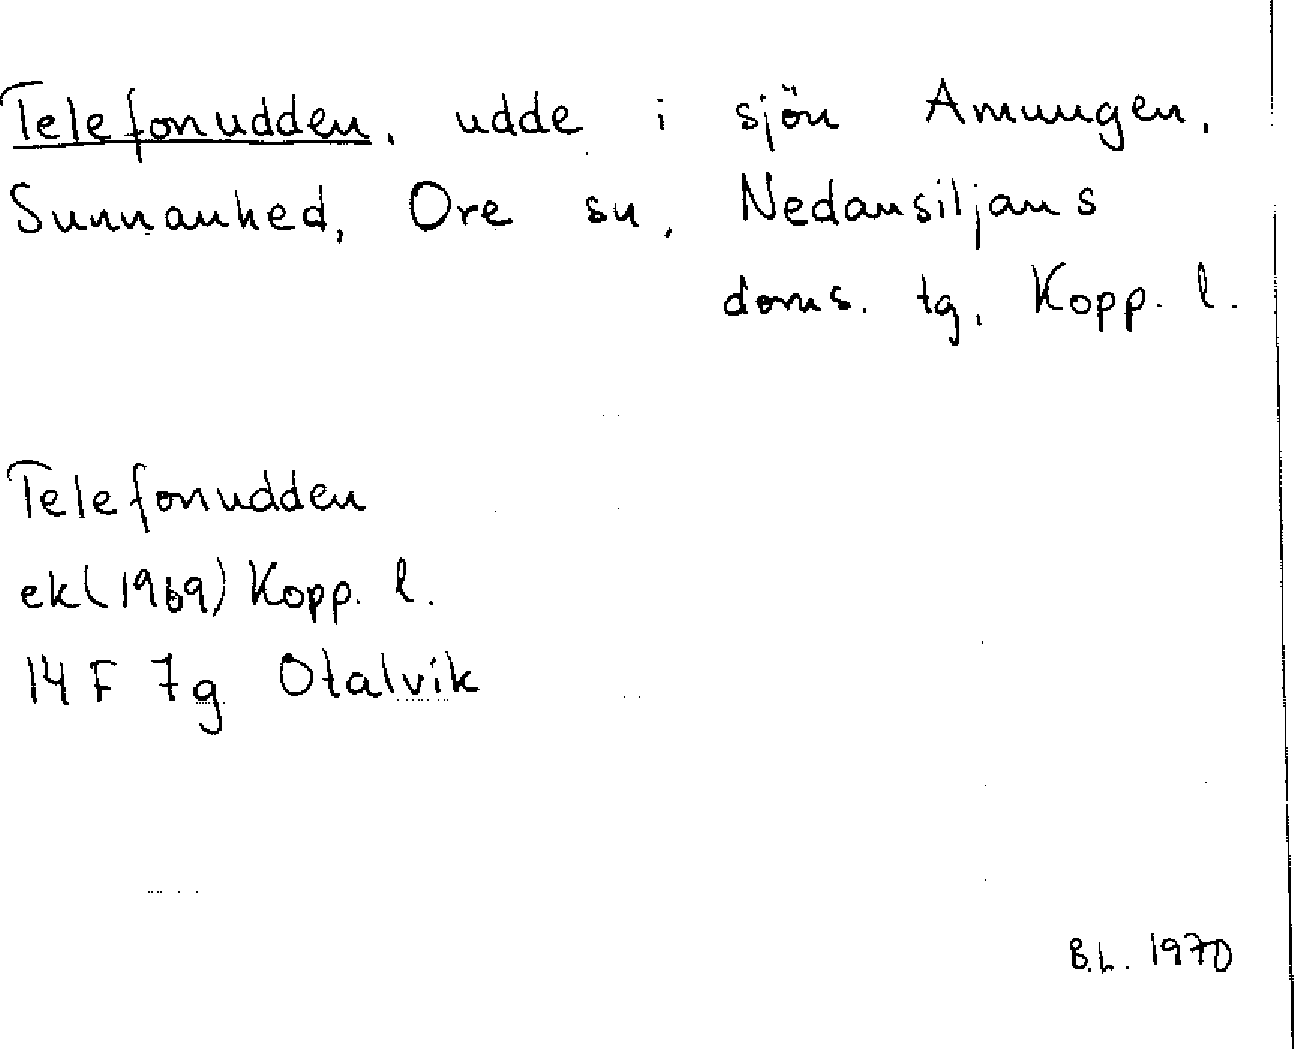 Telefonudden, udde i sjön Amungen,
Sunnanhed, Ore sn, Nedansiljans
doms. tg, Kopp. l.
Telefonudden
ek(1969) Kopp. l.
14 F 7g Otalvik
B.L. 1970